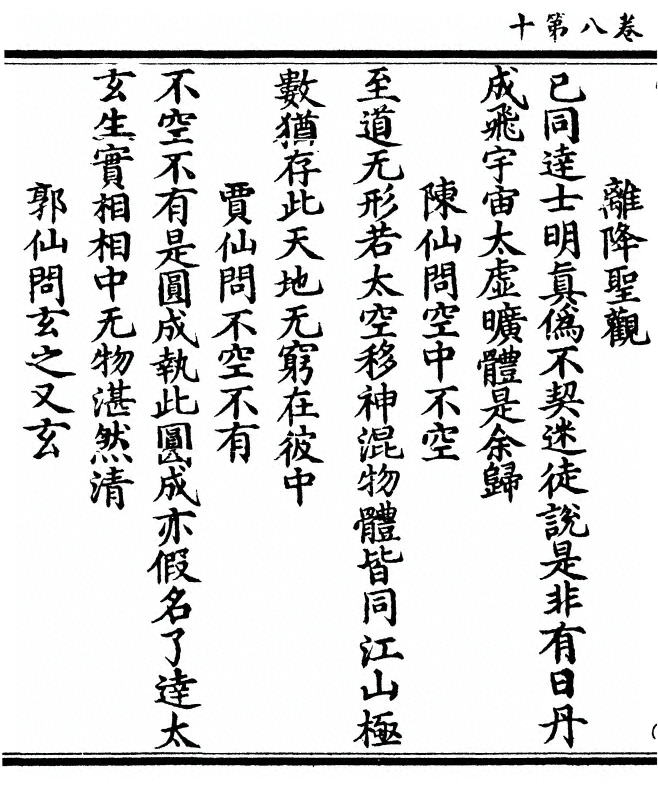 卷八第十
離降聖觀
已同達士明真偽不契迷徒說是非有日丹
成飛宇宙太虛曠體是余歸
陳仙問空中不空
至道无形若太空移神混物體皆同江山極
數猶存此天地无窮在彼中
賈仙問不空不有
不空不有是圓成執此圓成亦假名了達太
玄生實相相中无物湛然清
郭仙問玄之又玄